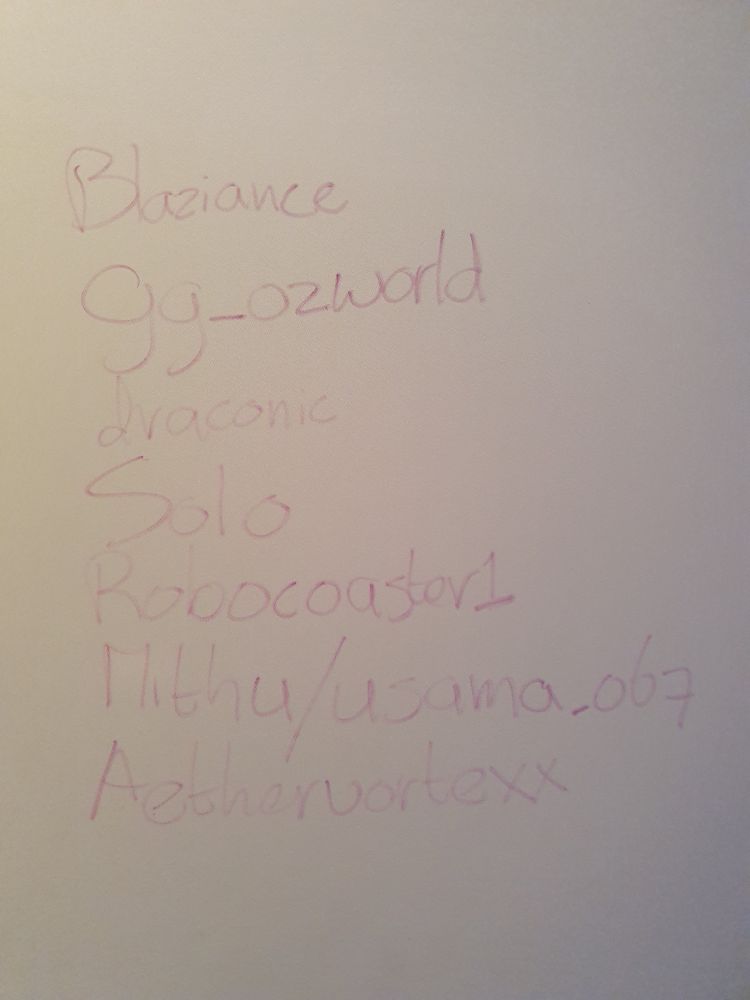 Blaziance
Gg_ozworld
draconic
Solo
Robocoaster1
Mithu/usama_067
Aethervortexx